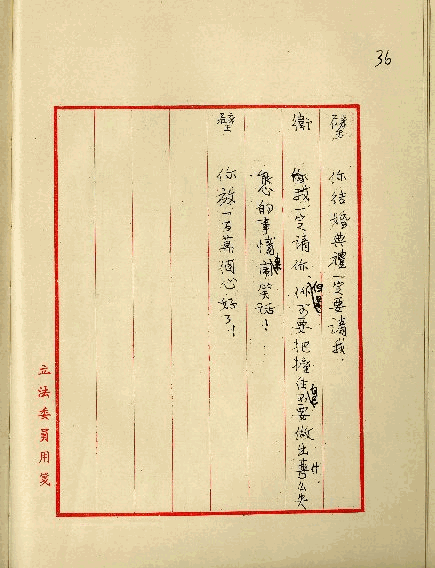 36
璧 你結婚典禮一定要請我.
衛 我一定請你 但是你可要把握住 不要做出甚么失
態的事情 鬧笑話!
璧 你放一百萬個心好了!
立法委員用箋